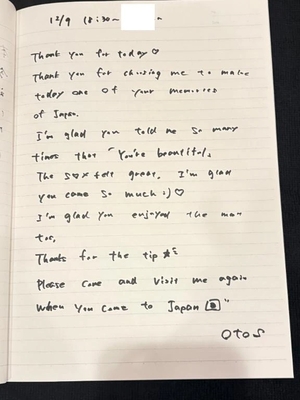 12/9 18:30~
Thank you for today♡
Thank you for choosing me to make
today one of your memories
of Japan.
I'm glad you told me so many
times that "You're beautiful.
The s♡x felt great. I'm glad
you came so much :) ♡
I'm glad you enjoyed the mat
too.
Thanks for the tip
Please come and visit me again
when you come to Japan